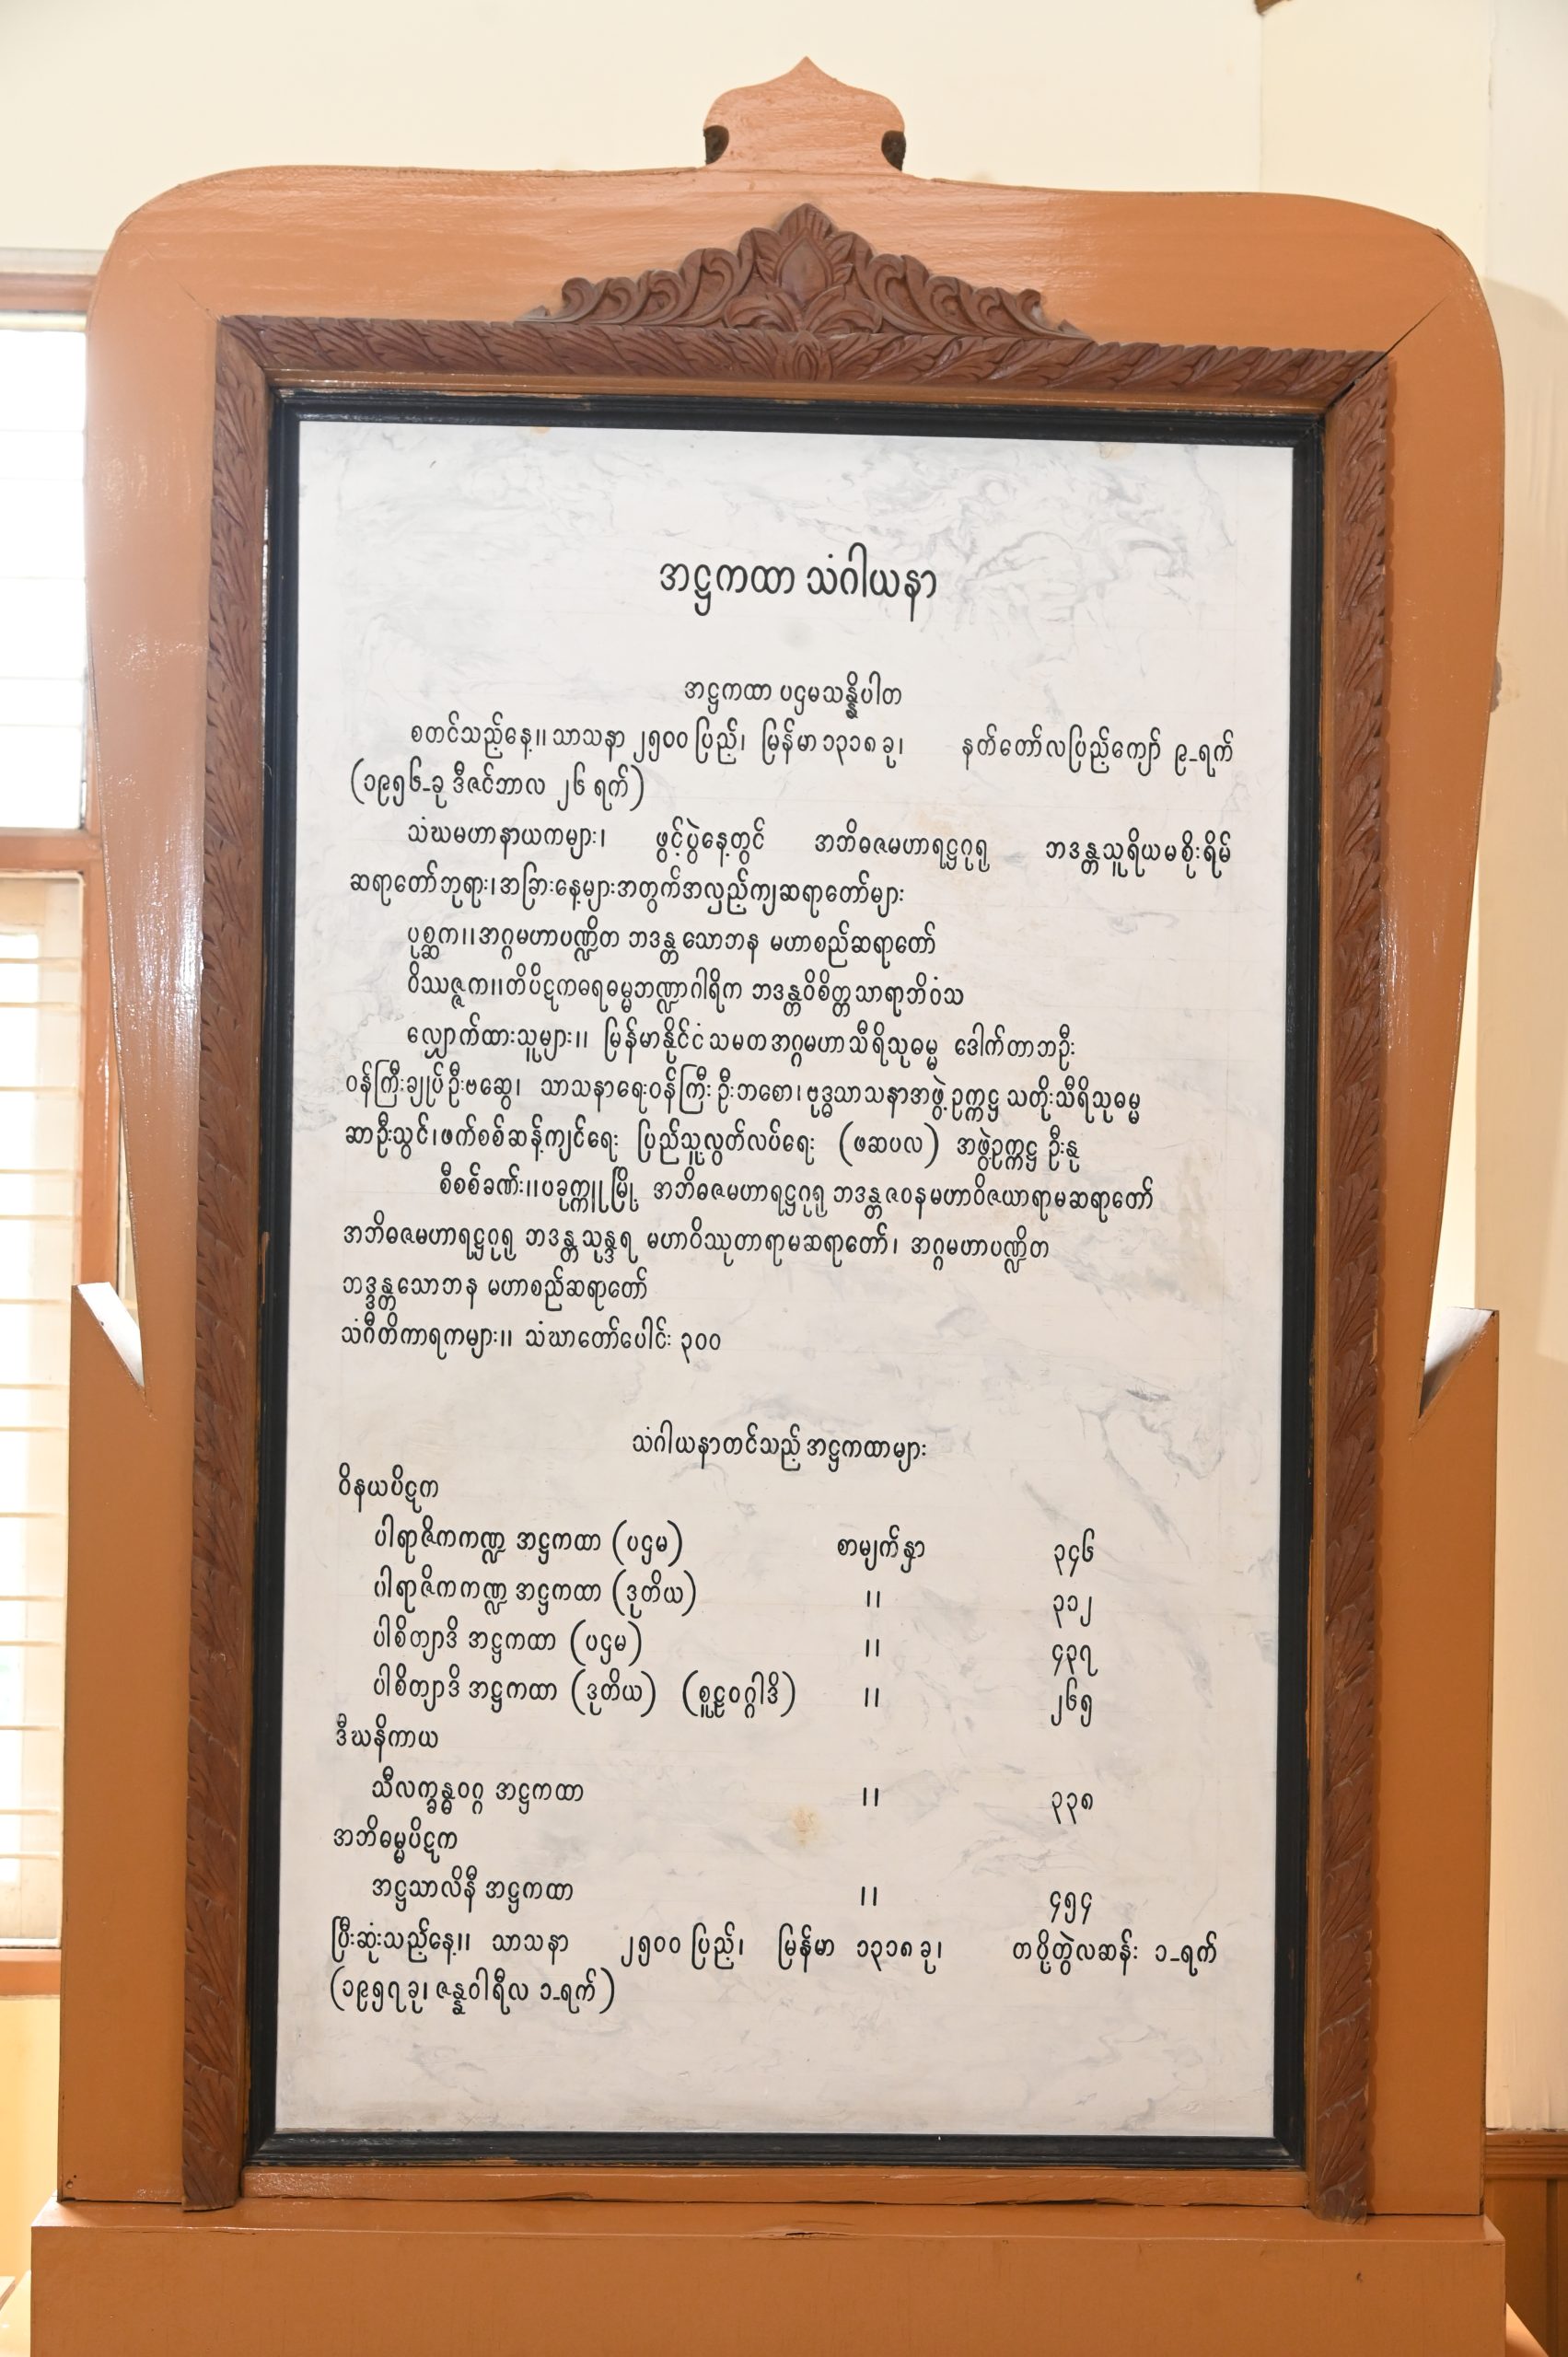 အဋ္ဌကထာ သံဂါယနာ
အဋ္ဌကထာ ပဌမသန္နိပါတ
စတင်သည့်နေ့။ သာသနာ ၂၅၀၀ ပြည့်၊ မြန်မာ ၁၃၁၈ ခု၊ နတ်တော်လပြည့်ကျော် ၉-ရက်
(၁၉၅၆-ခု ဒီဇင်ဘာလ ၂၆ ရက်)
သံဃမဟာနာယကများ၊ ဖွင့်ပွဲနေ့တွင် အဘိဓဇမဟာရဋ္ဌဂုရု ဘဒန္တသူရိယမစိုးရိမ်
ဆရာတော်ဘုရား၊ အခြားနေ့များအတွက်အလှည့်ကျဆရာတော်များ
ပုစ္ဆက။ အဂ္ဂမဟာပဏ္ဍိတ ဘဒန္တသောဘန မဟာစည်ဆရာတော်
ဝိဿဇ္ဇက။ တိပိဋကဓရဓမ္မဘဏ္ဍာဂါရိက ဘဒန္တဝိစိတ္တသာရာဘိဝံသ
လျှောက်ထားသူများ။ မြန်မာနိုင်ငံသမတအဂ္ဂမဟာသီရိသုဓမ္မ ဒေါက်တာဘဦး
ဝန်ကြီးချုပ်ဦးဗဆွေ၊ သာသနာရေးဝန်ကြီး ဦးဘစော၊ ဗုဒ္ဓသာသနာအဖွဲ့ဥက္ကဋ္ဌ သတိုးသီရိသုဓမ္မ
ဆာဦးသွင်၊ ဖက်စစ်ဆန့်ကျင်ရေး ပြည်သူ့လွတ်လပ်ရေး (ဖဆပလ) အဖွဲ့ဥက္ကဋ္ဌ ဦးနု
စီစစ်ခဏ်း။ ပခုက္ကူမြို့ အဘိဓဇမဟာရဋ္ဌဂုရု ဘဒန္တဇဝနမဟာဝိဇယာရာမဆရာတော်
အဘိဓဇမဟာရဋ္ဌဂုရု ဘဒန္တသုန္ဒရ မဟာဝိဿုတာရာမဆရာတော်၊ အဂ္ဂမဟာပဏ္ဍိတ
ဘဒ္ဒန္တသောဘန မဟာစည်ဆရာတော်
သံဂီတိကာရကများ။ သံဃာတော်ပေါင်း ၃၀၀
သံဂါယနာတင်သည့် အဋ္ဌကထာများ
ဝိနယပိဋက
ပါရာဇိကကဏ္ဍ အဋ္ဌကထာ (ပဌမ) စာမျက်နှာ ၃၄၆
ပါရာဇိကကဏ္ဍ အဋ္ဌကထာ (ဒုတိယ) ။ ၃၁၂
ပါစိတျာဒိ အဋ္ဌကထာ (ပဌမ) ။ ၄၃၇
ပါစိတျာဒိ အဋ္ဌကထာ (ဒုတိယ) (စူဠဝဂ္ဂါဒိ) ။ ၂၆၅
ဒီဃနိကာယ
သီလက္ခန္ဓဝဂ္ဂ အဋ္ဌကထာ ။ ၃၃၈
အဘိဓမ္မပိဋက
အဋ္ဌသာလိနီ အဋ္ဌကထာ ။ ၄၅၄
ပြီးဆုံးသည့်နေ့။ သာသနာ ၂၅၀၀ ပြည့်၊ မြန်မာ ၁၃၁၈ ခု၊ တပို့တွဲလဆန်း ၁-ရက်
(၁၉၅၇ ခု၊ ဇန္နဝါရီလ ၁-ရက်)